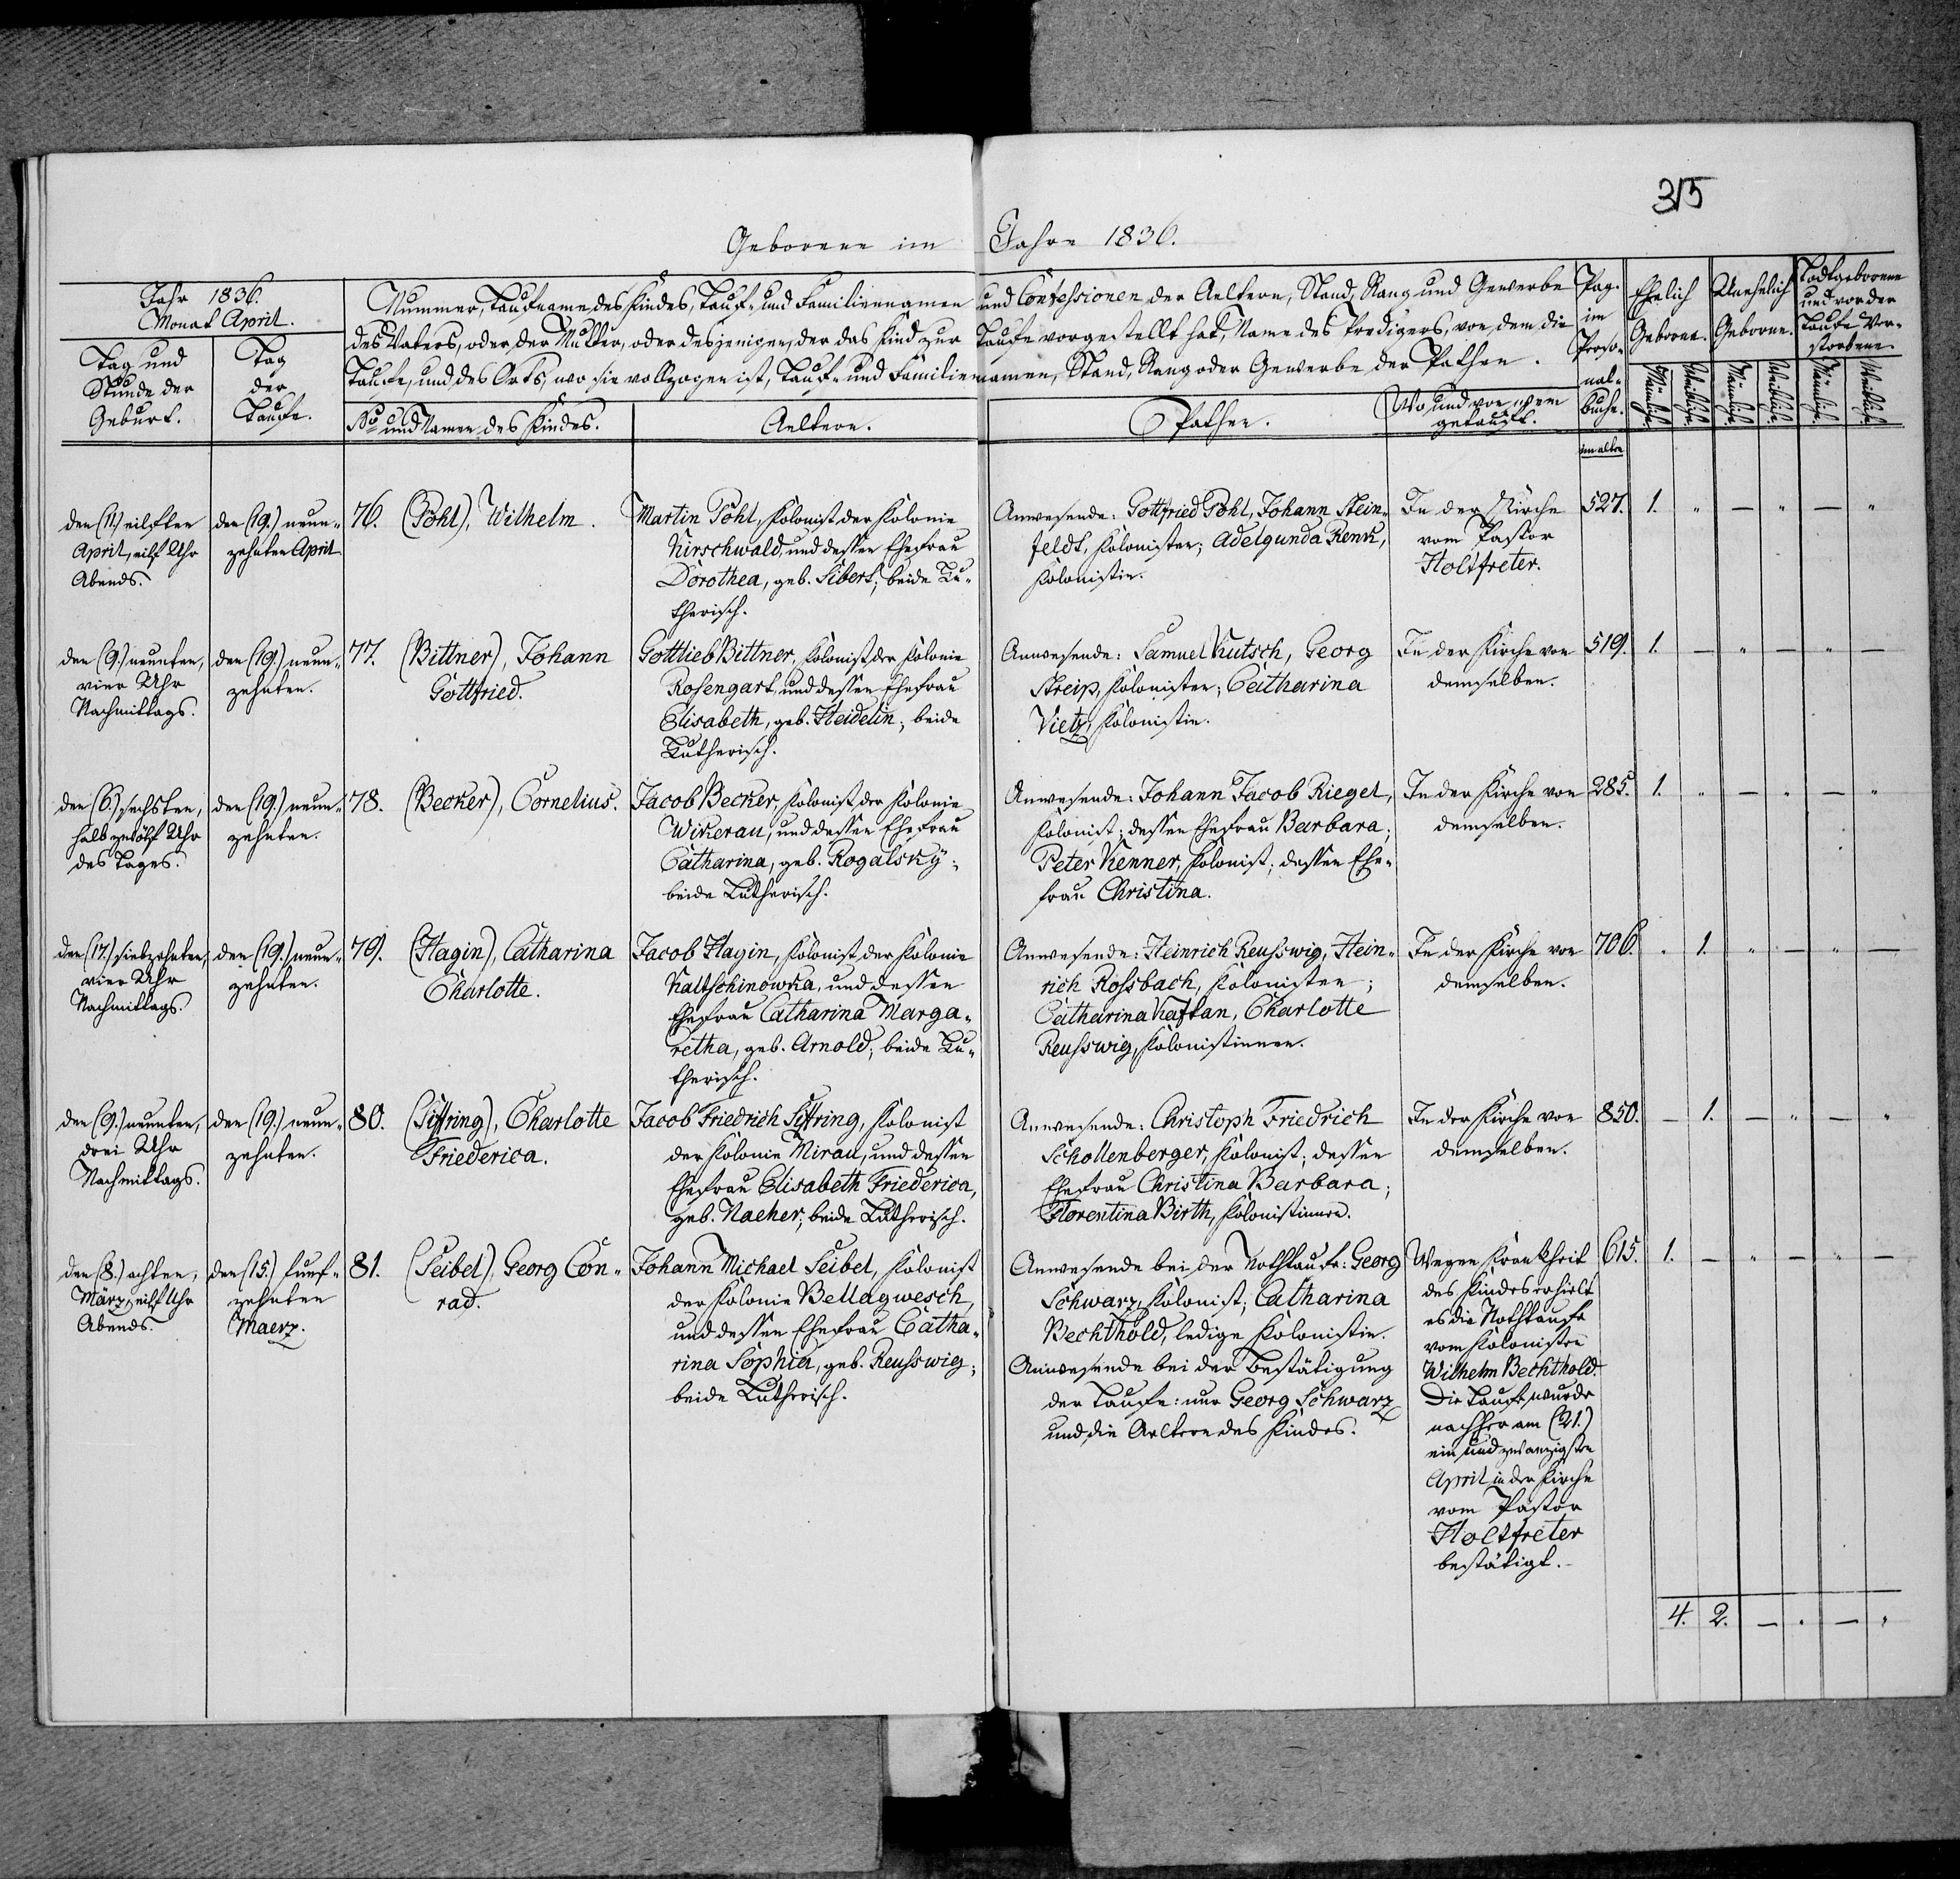 315
Geborene im Jahre 1836.
Jahr 1836.
Monat April.
Tag und
Stunde der
Geburt.
Tag
der
Taufe.
Nummer, Taufname des Kindes, Tauf- und Familiennamen und Confessionen der Aeltern, Stand, Rang und Gewerbe
des Vaters, oder der Mutter, oder desjenigen, der das Kind zur Taufe vorgestellt hat, Name des Predigers, von dem die
Taufe, und des Orts, wo sie vollzogen ist, Tauf- und Familiennamen, Stand, Rang oder Gewerbe der Pathen.
No und Namen des Kindes.
Aeltern.
Pathen.
Wo und von wem
getauft.
Pag.
im
Perso-
nal-
buche.
im alten
Ehelich
Geborne.
Unehelich
Geborne.
Todtgeborene
und vor der
Taufe Ver-
storbene.
Männliche.
Weibliche.
Männliche.
Weibliche.
Männliche.
Weibliche.
den (11.) eilften
April, eilf Uhr
Abends.
den (19.) neun-
zehnten April
76. (Pohl), Wilhelm.
Martin Pohl, Kolonist der Kolonie
Kirschwald, und dessen Ehefrau
Dorothea, geb. Sibert; beide Lu-
therisch.
Anwesende: Gottfried Pohl, Johann Stein-
feldt, Kolonisten; Adelgunda Renk,
Kolonistin.
In der Kirche
vom Pastor
Holtfreter.
527. 1. " — " — "
den (9.) neunten,
vier Uhr
Nachmittags.
den (19.) neun-
zehnten.
77. (Bittner), Johann
Gottfried.
Gottlieb Bittner, Kolonist der Kolonie
Rosengart, und dessen Ehefrau
Elisabeth, geb. Heidelin; beide
Lutherisch.
Anwesende: Samuel Kutsch, Georg
Streip, Kolonisten; Catharina
Vietz, Kolonistin.
In der Kirche von
demselben.
519. 1. — " — " —
den (6.) sechsten,
halb zwölf Uhr
des Tages.
den (19.) neun-
zehnten.
78. (Becker), Cornelius.
Jacob Becker, Kolonist der Kolonie
Wikerau, und dessen Ehefrau
Catharina, geb. Rogalsky;
beide Lutherisch.
Anwesende: Johann Jacob Riegel,
Kolonist; dessen Ehefrau Barbara;
Peter Kenner, Kolonist; dessen Ehe-
frau Christina.
In der Kirche von
demselben.
285. 1. " — " — "
den (17.) siebzehnten,
vier Uhr
Nachmittags.
den (19.) neun-
zehnten.
79. (Hagin), Catharina
Charlotte.
Jacob Hagin, Kolonist der Kolonie
Kaltschinowka, und dessen
Ehefrau Catharina Marga-
retha, geb. Arnold; beide Lu-
therisch.
Anwesende: Heinrich Reusswig, Hein-
rich Rossbach, Kolonisten;
Catharina Kaftan, Charlotte
Reusswig, Kolonistinnen.
In der Kirche von
demselben.
706. " 1. " — " —
den (9.) neunten,
drei Uhr
Nachmittags.
den (19.) neun-
zehnten.
80. (Siffring), Charlotte
Friederica.
Jacob Friedrich Siffring, Kolonist
der Kolonie Mirau, und dessen
Ehefrau Elisabeth Friederica,
geb. Naeher; beide Lutherisch.
Anwesende: Christoph Friedrich
Schollenberger, Kolonist; dessen
Ehefrau Christina Barbara;
Florentina Birth, Kolonistinnen.
In der Kirche von
demselben.
850. — 1. — " — "
den (8.) achten,
März, eilf Uhr
Abends.
den (15.) funf-
zehnten
Maerz.
81. (Seibel), Georg Con-
rad.
Johann Michael Seibel, Kolonist
der Kolonie Bellagwesch,
und dessen Ehefrau Catha-
rina Sophia, geb. Reusswig;
beide Lutherisch.
Anwesende bei der Nothtaufe: Georg
Schwarz, Kolonist; Catharina
Bechthold, ledige Kolonistin.
Anwesende bei der Bestätigung
der Taufe: nur Georg Schwarz
und die Aeltern des Kindes.
Wegen Krankheit
des Kindes erhielt
es die Nothtaufe
vom Kolonisten
Wilhelm Bechthold.
Die Taufe wurde
nachher am (21.)
ein und zwanzigsten
April in der Kirche
vom Pastor
Holtfreter
bestätigt.
615. 1. — " — " —
4. 2. — " — "